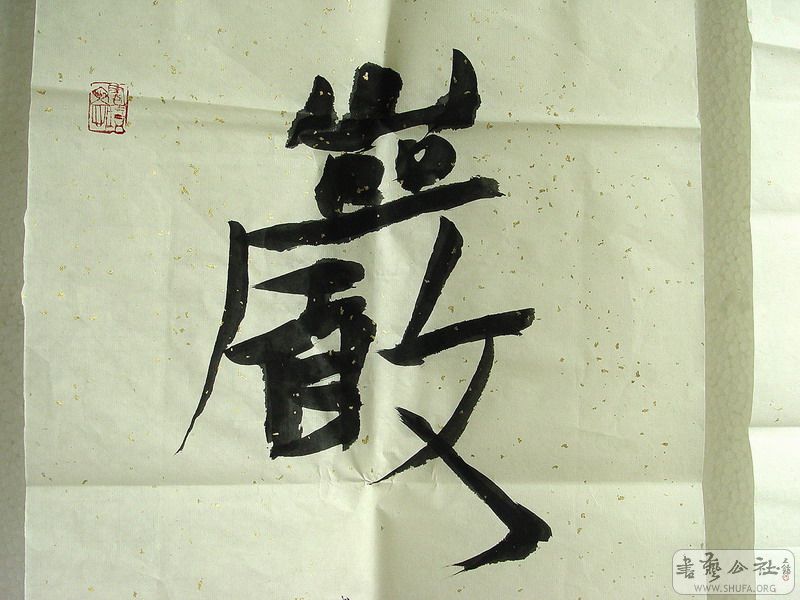 巖
書藝公社
WWW.SHUFA.ORG